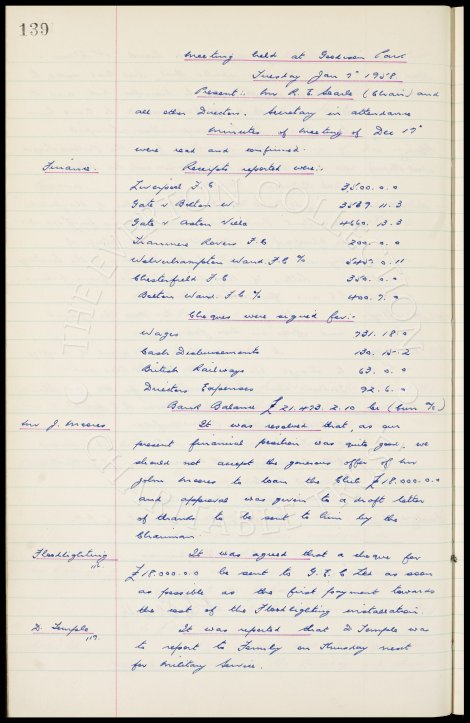 139
Meeting held at Goodison Park
Tuesday Jan 7th 1958
Present:- Mr R. E. Searle (Chair) and
all other Directors. Secretary in attendance
Minutes of meeting of Dec 17th
were read and confirmed.
Finance. Receipts reported were:-
Liverpool F.C 3500.0.0
Gate v Bolton W. 3589.11.3
Gate v Aston Villa 4660.13.3
Tranmere Rovers F.C 200.0.0
Wolverhampton Wand. F.C % 0.11
Chesterfield F.C 350.0.0
Bolton Wand. F.C % 400.7.0
Cheques were signed for:-
Wages 731.18.0
Cash Disbursements 130.15.2
British Railways 63.0.0
Directors Expenses 92.6.0
Bank Balance £21.473.2.10 (Curr a/c)
Mr J. Moores It was resolved that, as our
present financial position was quite good, we
should not accept the generous offer of Mr
John Moores to loan the Club £18,000.0.0
and approval was given to a draft letter
of thanks to be sent to him by the
Chairman.
Floodlighting It was agreed that a cheque for
£18.000.0.0 be sent to G.E.C Ltd as soon
as possible as the first payment towards
the cost of the Floodlighting installation.
D. Temple It was reported that D Temple was
to report to on Thursday next
for Military Service.
THE EVERTON COLLECTION
CHARITABLE TRUST